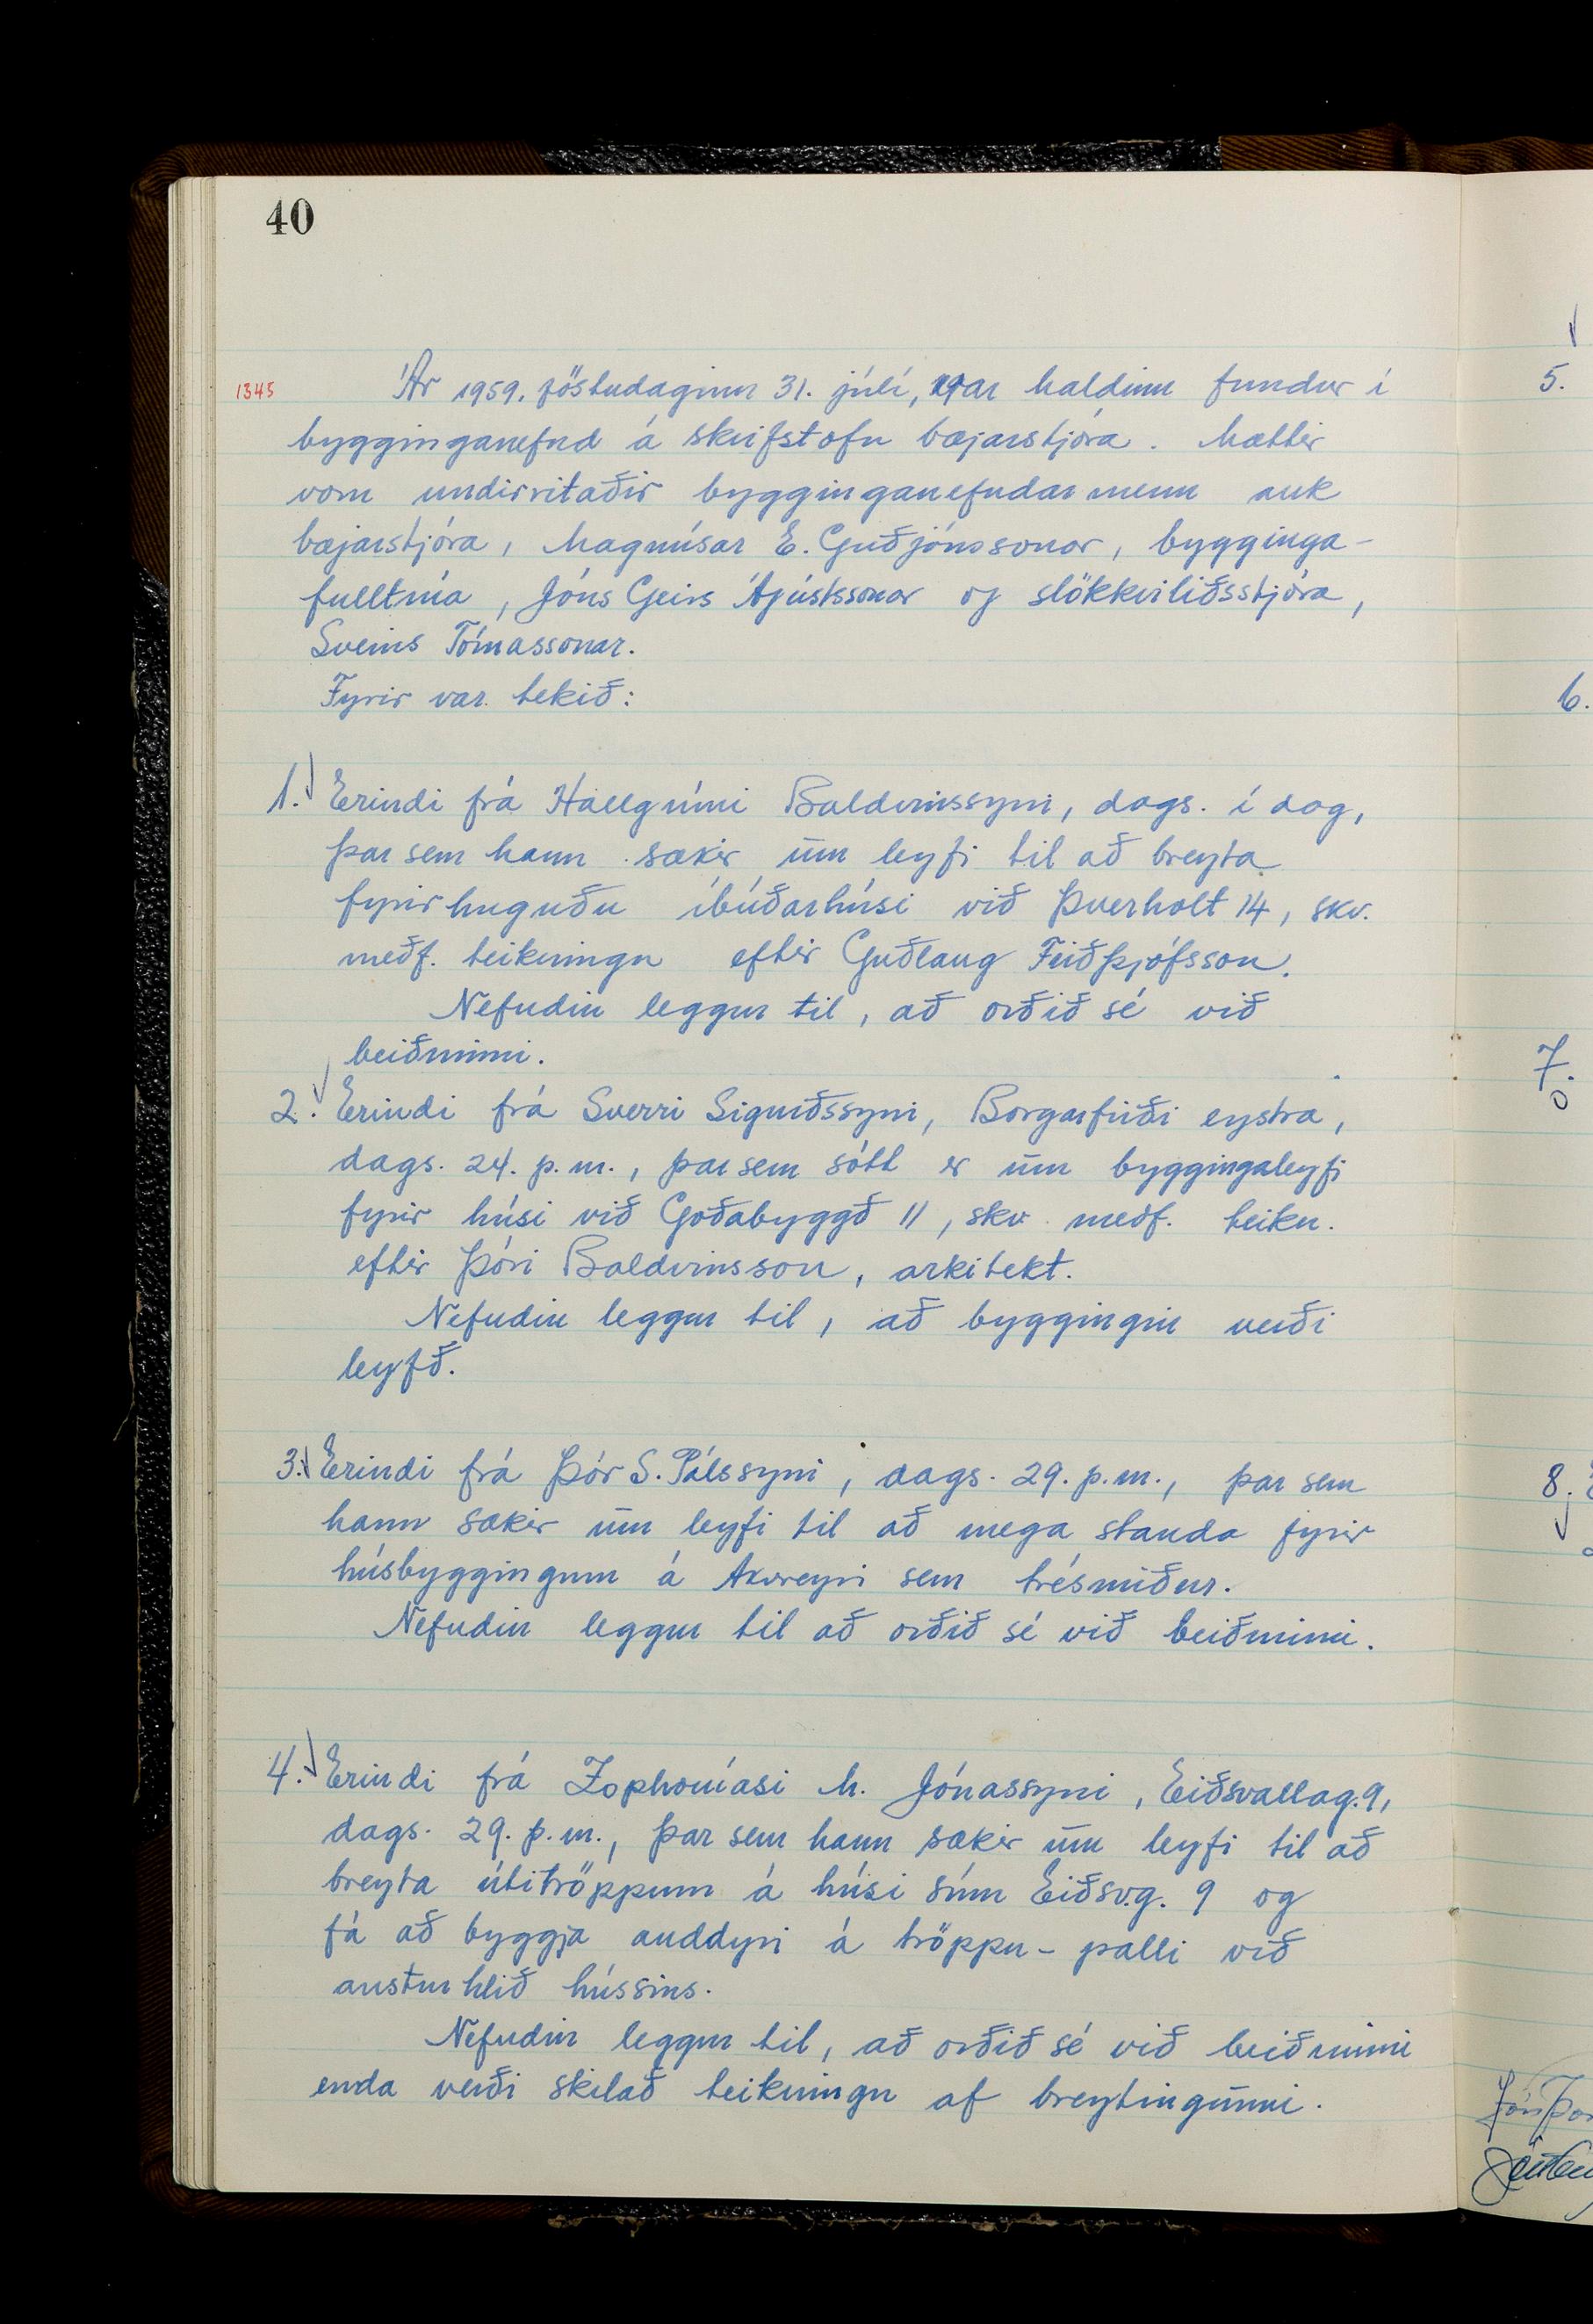 40
1345
Ár 1959, föstudaginn 31. júlí, var haldinn fundur í
bygginganefnd á skrifstofu bæjarstjóra. Mættir
voru undirritaðir bygginganefndarmenn auk
bæjarstjóra, Magnúsar E. Guðjónssonar, bygginga-
fulltrúa, Jóns Geirs Ágústssonar og slökkviliðsstjóra,
Sveins Tómassonar.
Fyrir var tekið:
1. Erindi frá Hallgrími Baldvinssyni, dags. í dag,
þar sem hann sækir um leyfi til að breyta
fyrirhuguðu íbúðarhúsi við Þverholt 14, skv.
meðf. teikningu eftir Guðlaug Friðþjófsson.
Nefndin leggur til, að orðið sé við
beiðninni.
2. Erindi frá Sverri Sigurðssyni, Borgarfirði eystra,
dags. 24. þ.m., þar sem sótt er um byggingaleyfi
fyrir húsi við Goðabyggð 11, skv. meðf. teikn.
eftir Þóri Baldvinsson, arkitekt.
Nefndin leggur til, að byggingin verði
leyfð.
3. Erindi frá Þór S. Pálssyni, dags. 29. þ.m., þar sem
hann sækir um leyfi til að mega standa fyrir
húsbyggingum á Akureyri sem trésmiður.
Nefndin leggur til að orðið sé við beiðninni.
4. Erindi frá Zophoníasi M. Jónassyni, Eiðsvallag. 9,
dags. 29. þ.m., þar sem hann sækir um leyfi til að
breyta útitröppum á húsi sínu Eiðsv.g. 9 og
fá að byggja anddyri á tröppu-palli við
austurhlið hússins.
Nefndin leggur til, að orðið sé við beiðninni
enda verði skilað teikningu af breytingunni.
5.
6.
7.
8.
Jón Þor